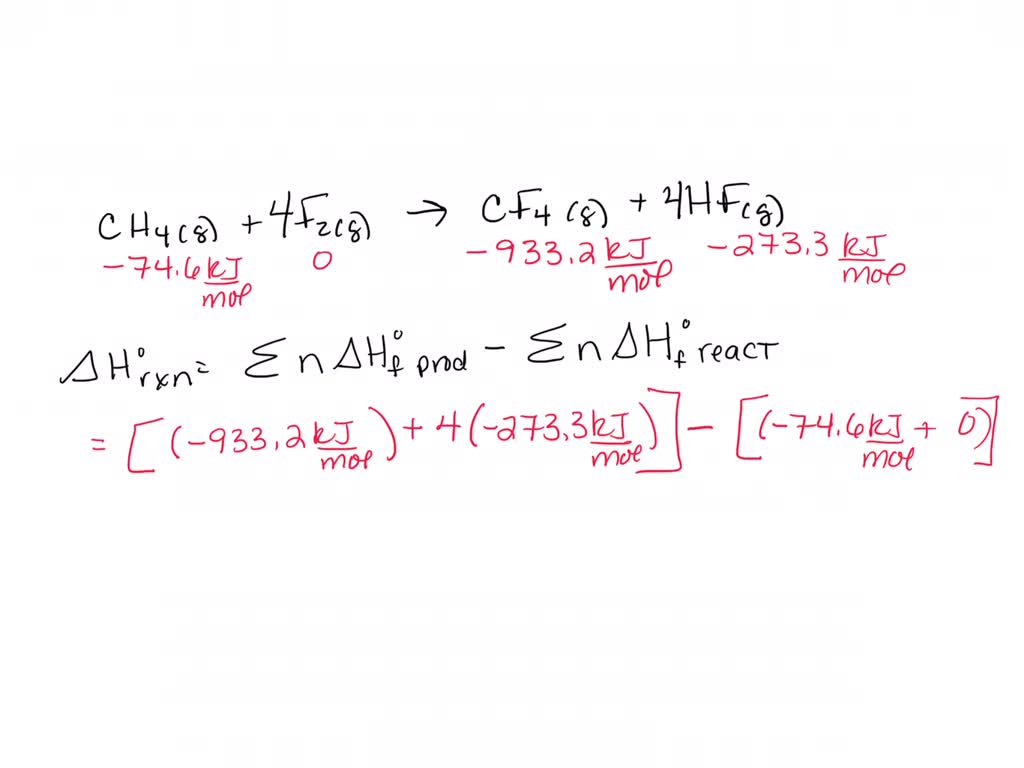 CH₄(g) + 4F₂(g) → CF₄(g) + 4HF(g)
-74.6 kJ/mol 0 -933.2 kJ/mol -273.3 kJ/mol
ΔH°rxn = Σ n ΔH°f prod - Σ n ΔH°f react
= [(-933.2 kJ/mol) + 4(-273.3 kJ/mol)] - [(-74.6 kJ/mol + 0)]